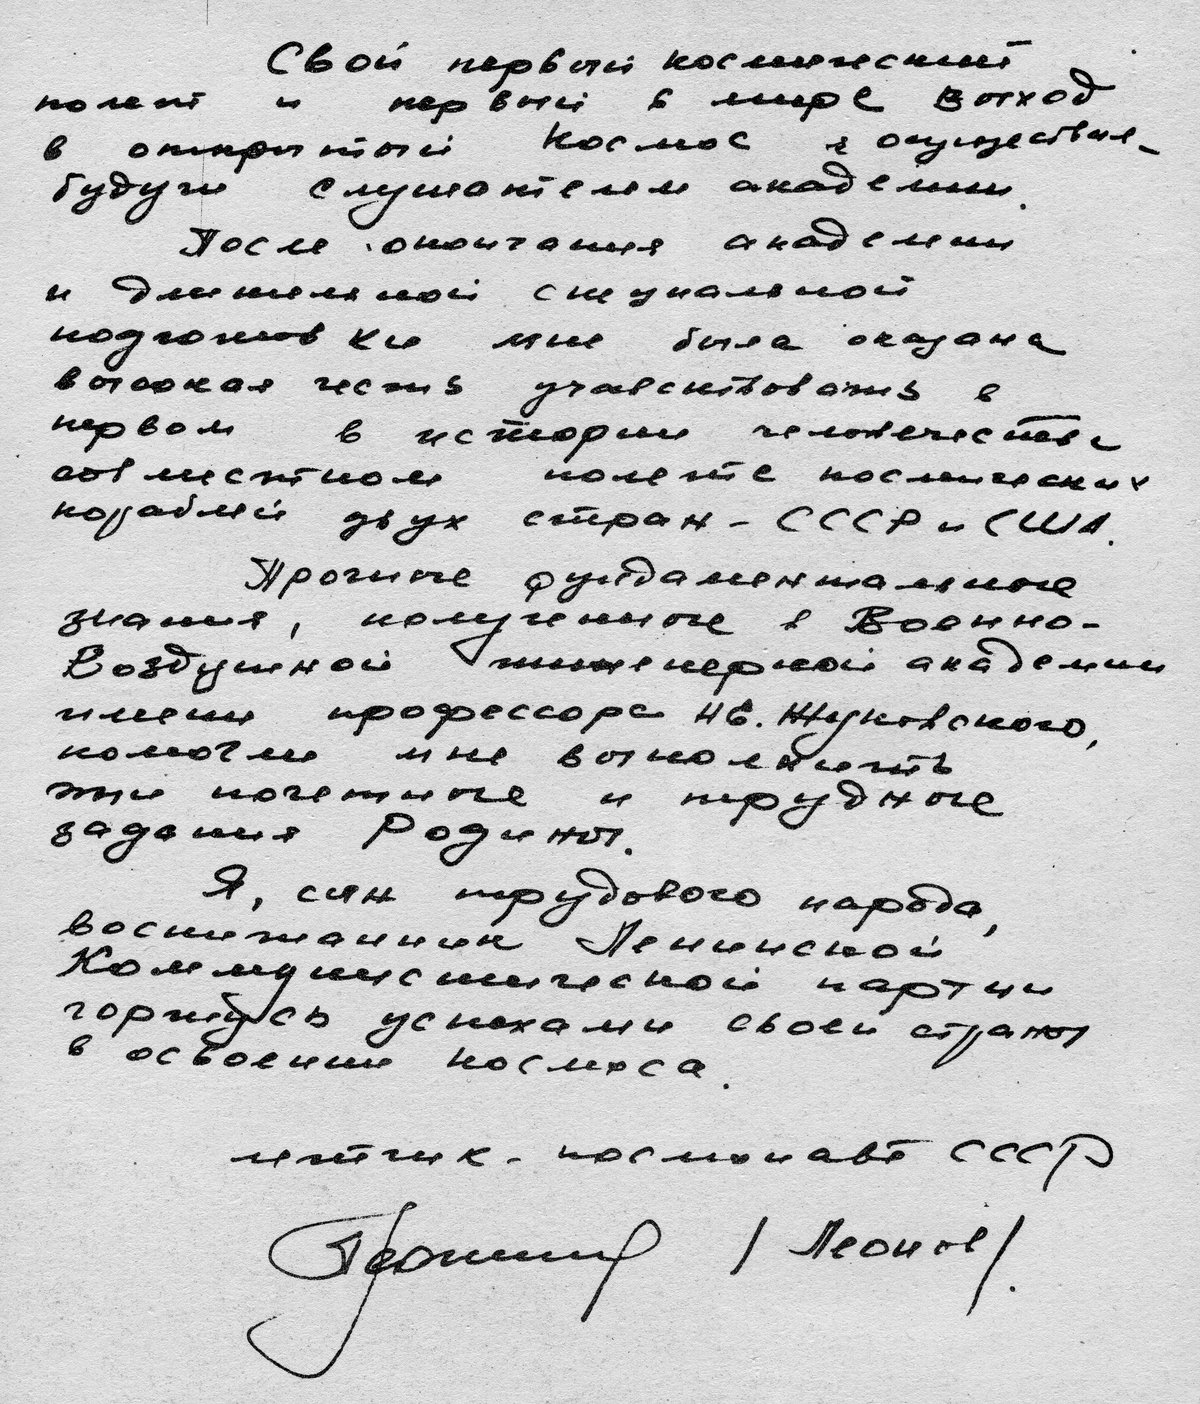 Свой первый космический
полет и первый в мире выход
в открытый космос я осуществил,
будучи слушателем академии.
После окончания академии
и длительной специальной
подготовки мне была оказана
высокая честь участвовать в
первом в истории человечества
совместном полете космических
кораблей двух стран - СССР и США.
Прочные фундаментальные
знания, полученные в Военно-
Воздушной инженерной академии
имени профессора Н.Е. Жуковского,
помогли мне выполнить
эти почетные и трудные
задания Родины.
Я, сын трудового народа,
воспитанник Ленинской
Коммунистической партии
горжусь успехами своей страны
в освоении космоса.
летчик-космонавт СССР
/Леонов/.